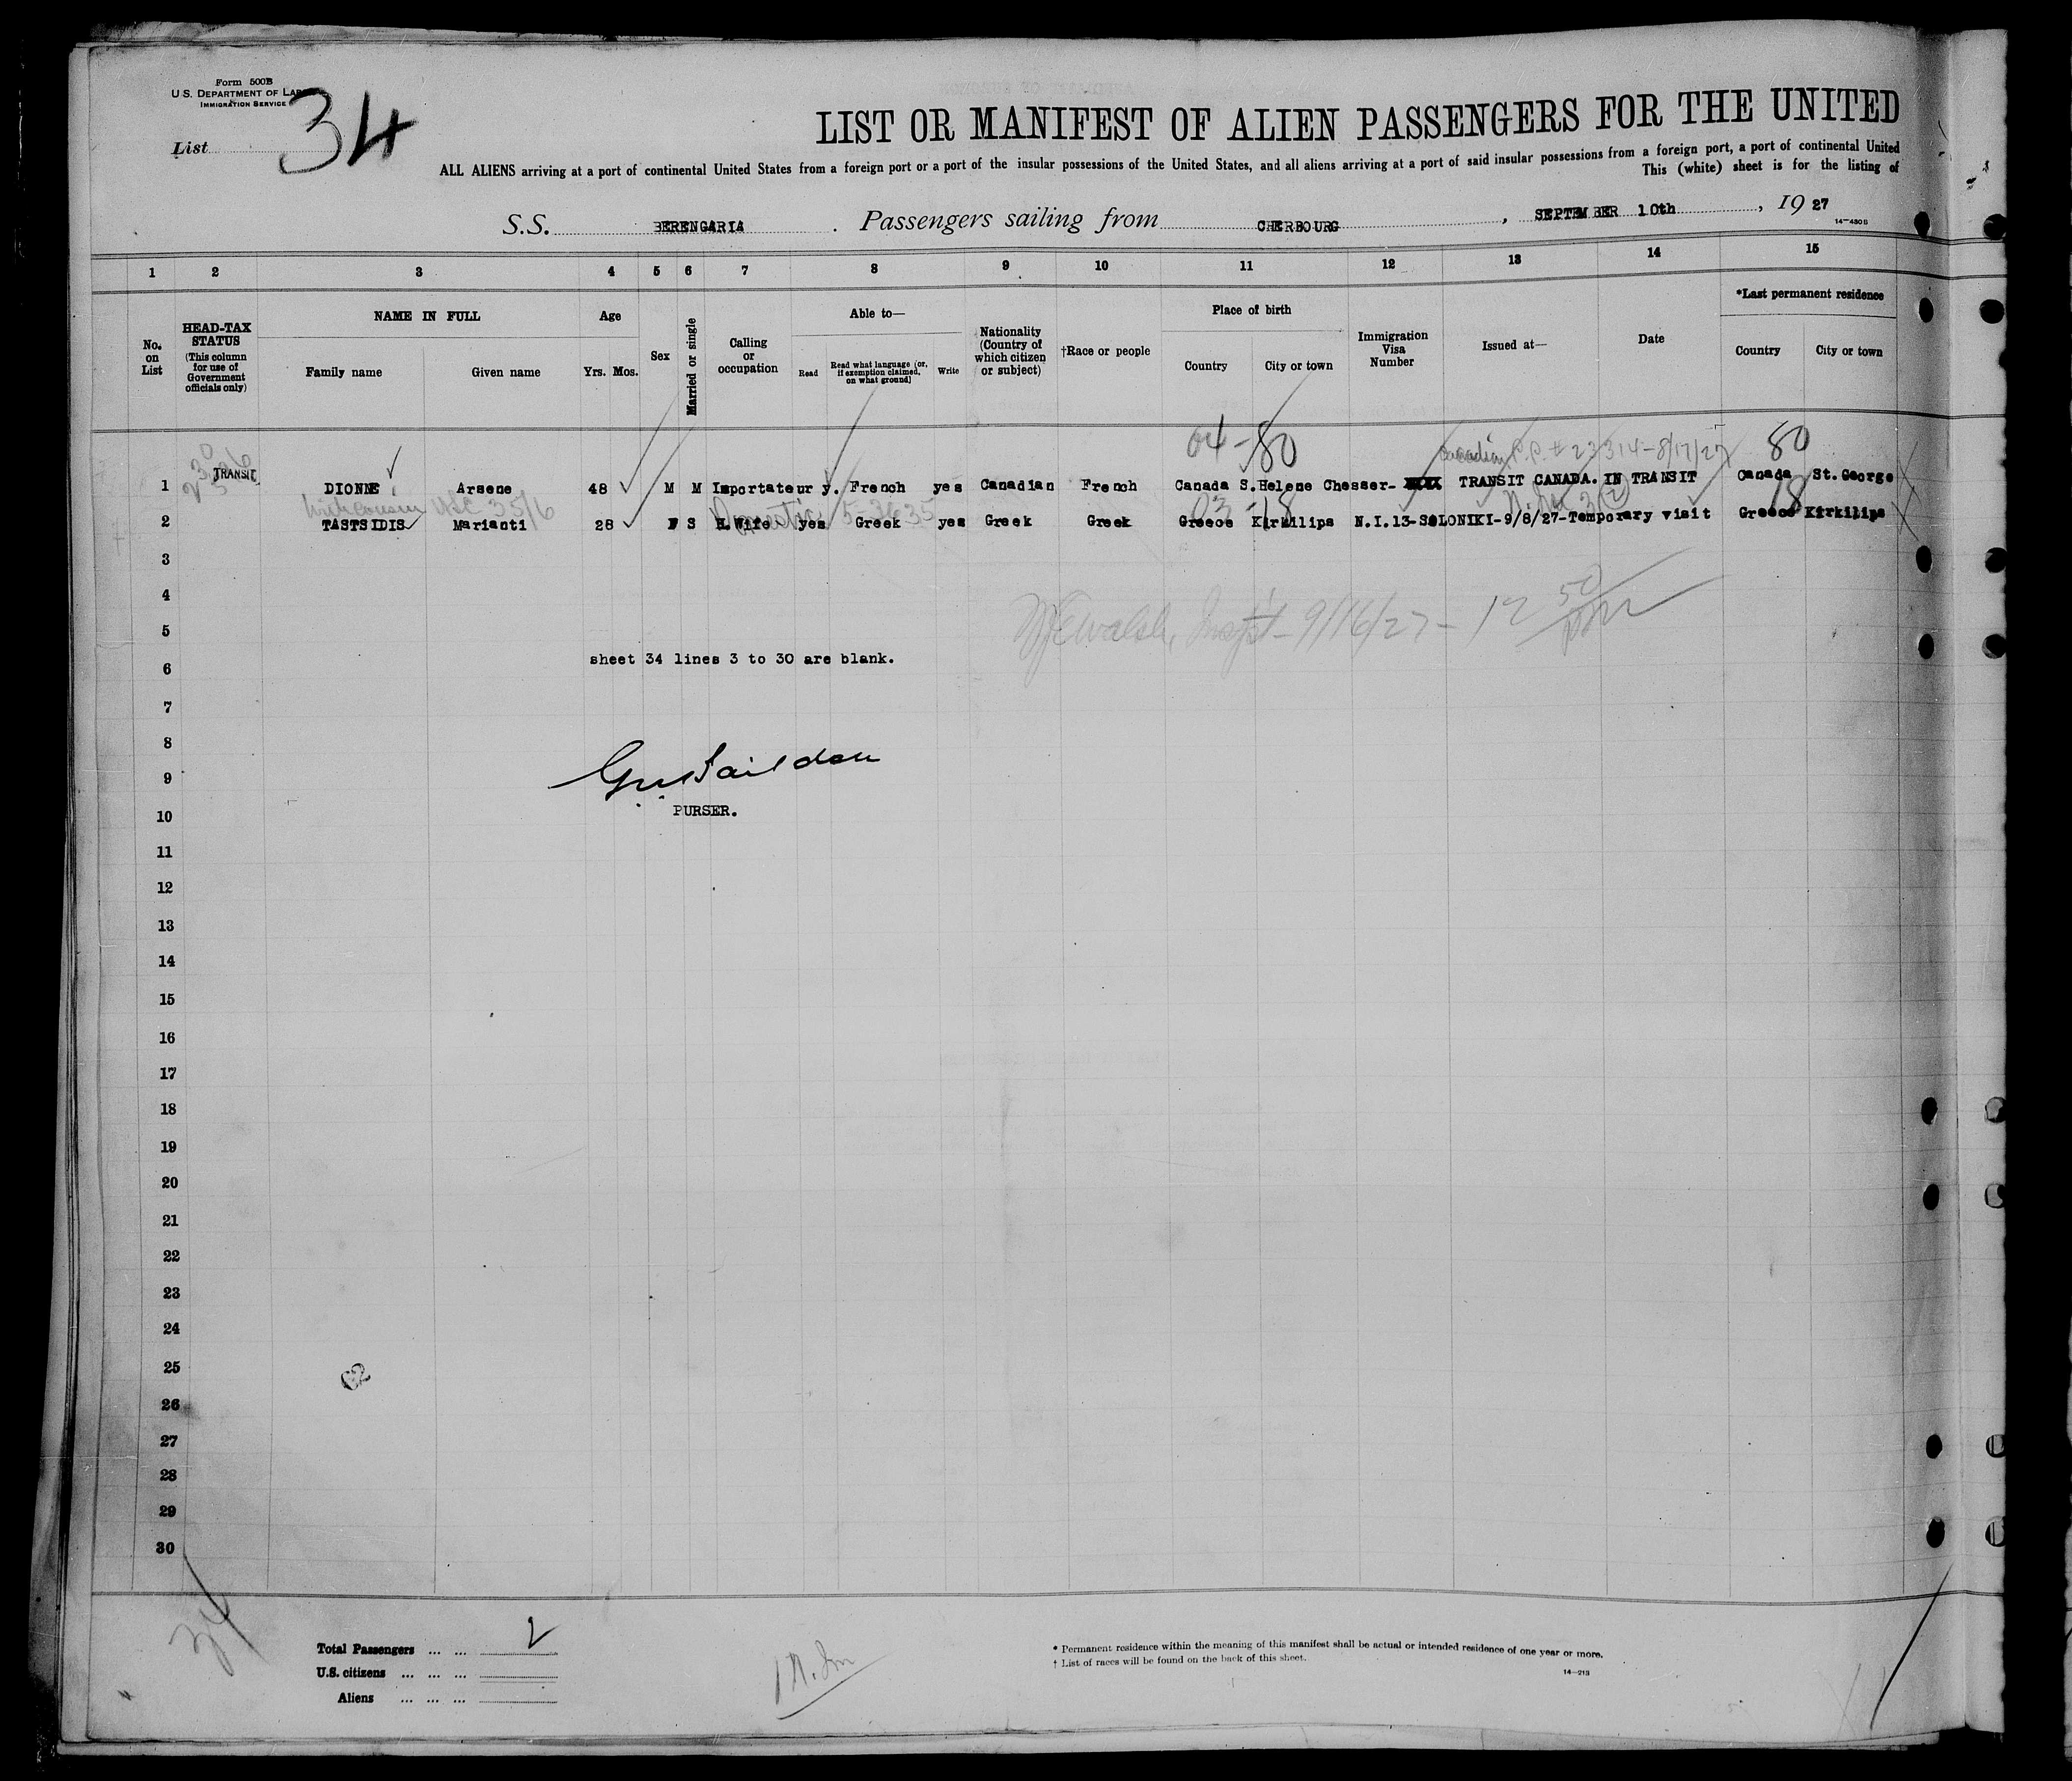 Form 500B
U.S. DEPARTMENT OF LABOR
IMMIGRATION SERVICE
List 34
LIST OR MANIFEST OF ALIEN PASSENGERS FOR THE UNITED
ALL ALIENS arriving at a port of continental United States from a foreign port or a port of the insular possessions of the United States, and all aliens arriving at a port of said insular possessions from a foreign port, a port of continental United
This (white) sheet is for the listing of
S.S. BERENGARIA . Passengers sailing from CHERBOURG , SEPTEMBER 10th , 19 27
14—430B
1 2 3 4 5 6 7 8 9 10 11 12 13 14 15
No. on List
HEAD-TAX STATUS (This column for use of Government officials only)
NAME IN FULL
Family name
Given name
Age
Yrs. Mos.
Sex
Married or single
Calling or occupation
Able to—
Read
Read what language [or, if exemption claimed, on what ground]
Write
Nationality (Country of which citizen or subject)
†Race or people
Place of birth
Country
City or town
Immigration Visa Number
Issued at—
Date
*Last permanent residence
Country
City or town
04-80
Canadian P.P. # 23314-8/17/27
80
1 TRANSIT DIONNE Arsene 48 M M Importateur y. French yes Canadian French Canada S.Helene Chesser- XXXX TRANSIT CANADA. IN TRANSIT Canada St.George
03-18
18
2 TASTSIDIS Marianti 28 F S H.Wife yes Greek yes Greek Greek Greece Kirkilips N.I.13-SOLONIKI-9/8/27-Temporary visit Greece Kirkilips
Domestic
3
4
5
Walsh, Insp't - 9/16/27 - 12 50 pm
6 sheet 34 lines 3 to 30 are blank.
7
8
9
10 PURSER.
11
12
13
14
15
16
17
18
19
20
21
22
23
24
25
26
27
28
29
30
34
Total Passengers ... ... 2
U.S. citizens ... ... ...
Aliens ... ... ...
* Permanent residence within the meaning of this manifest shall be actual or intended residence of one year or more.
† List of races will be found on the back of this sheet.
14—213